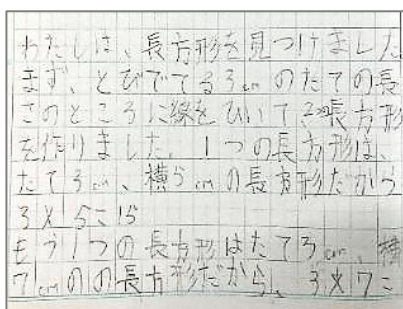 わたしは、長方形を見つけました
まず、とびでてる3cmのたての長
さのところに線をひいて、2つ長方形
を作りました。1つの長方形は、
たて3cm、横5cmの長方形だから
3×5=15
もう1つの長方形はたて3cm、横
7cmのの長方形だから、3×7=